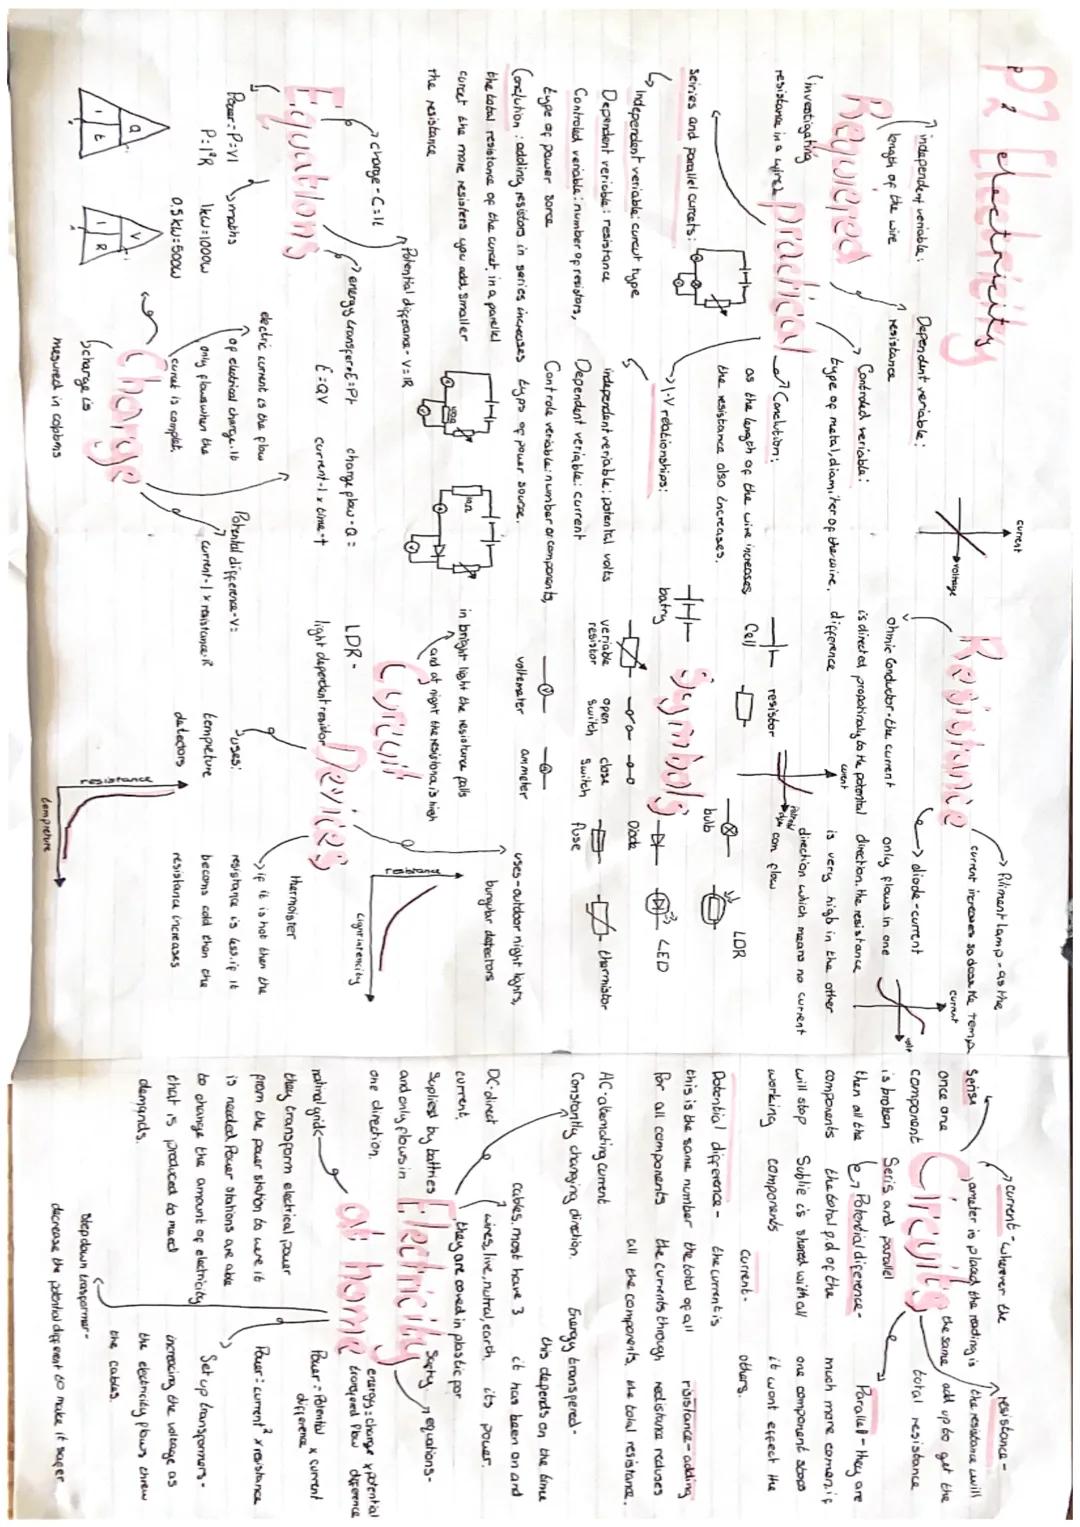 P2 Electricity
Requiered practical
independent veriable:
length of the wire
Dependent veriable:
resistance
(investigating
resistance in a wire)
Controled veriable:
type of metal, diamiter of the wire.
Conclution:
as the length of the wire increases
the resistance also increases.
Seiries and parallel curcets:
Independent veriable: curcut type
Dependent veriable: resistance
Controled variable: number of resistors,
type of power sorce
Conclution: adding resistors in series increases
the total resistance of the curcet. in a parallel
curcet the more resisters you add, smaller
the resistance
I-V relationships:
independent veriable: potental volts
Dependent veriable: current
Controle veriable: number or componants,
type of power sourse.
10Ω
Resistance
current
voltage
ohmic Conductor - the current
is directed propotinaly to the potental
difference
diode - current
only flows in one
direction. the resistance
is very high in the other
direction which means no current
can flow
current
Filiment lamp - as the
current increases so does the temp
current
volt
Symbols
batry
Cell
resistor
bulb
LDR
veriable
resistor
open
switch
close
switch
Diode
LED
fuse
thermistor
voltemeter
ammeter
Equations
charge - C = It
Potential differance - V = IR
energy transfer = E = Pt
E = QV
charge flow - Q =
current - I x time - t
Power = P = VI
P = I²R
maths
1kw = 1000w
0.5kw = 500w
Q
I t
V
I R
Charge
electric current is the flow
of electrical charge. it
only flows when the
curcut is complet.
charge is
mesured in colobms
Potental difference - V =
current - I x resistance R
Curcuit
Devices
LDR -
light dependent resistor
in bright light the resistance falls
and at night the resistance is high
uses - outdoor night lights,
burgular detectors
resistance
Light intencity
thermoister
if it is hot then the
resistance is less. if it
becoms cold then the
resistance increases
uses:
tempreture
detectors
resistance
tempreture
Circuits
Seris and parallel
Serise
once one
component
is broken
then all the
components
will stop
working
current - wherever the
ameter is placed the reading is
the same
resistance -
the resistance will
add up to get the
total resistance
Potential diference -
the total pd of the
Sublie is shared with all
components
Parallel - they are
much more comon. if
one component stops
it wont effect the
others.
Potential difference -
this is the same number
for all components
current -
the current is
the total of all
the currents through
all the components.
risistance - adding
redistane reduses
the total resistance.
Electricity
at home
AC - altemating current
Constantly changing direction.
DC - direct
current.
Suplied by battries
and only flows in
one direction.
cables. most have 3
wires, live, nutral, earth.
they are coved in plastic for
Safty
Energy transfered -
this depends on the time
it has been on and
its power.
equations -
energy = charge x potential
transfered flow difference
Power = Potential x current
difference
Power = current² x resistance
natinal grid
they transform electrical power
from the power station to were it
is needed Power stations are able
to change the amount of electricity
that is produced to meet
demands.
Set up transformers -
increacing the voltage as
the electricity flows threw
the cables.
step down trasformer -
decrease the potential different to make it safer